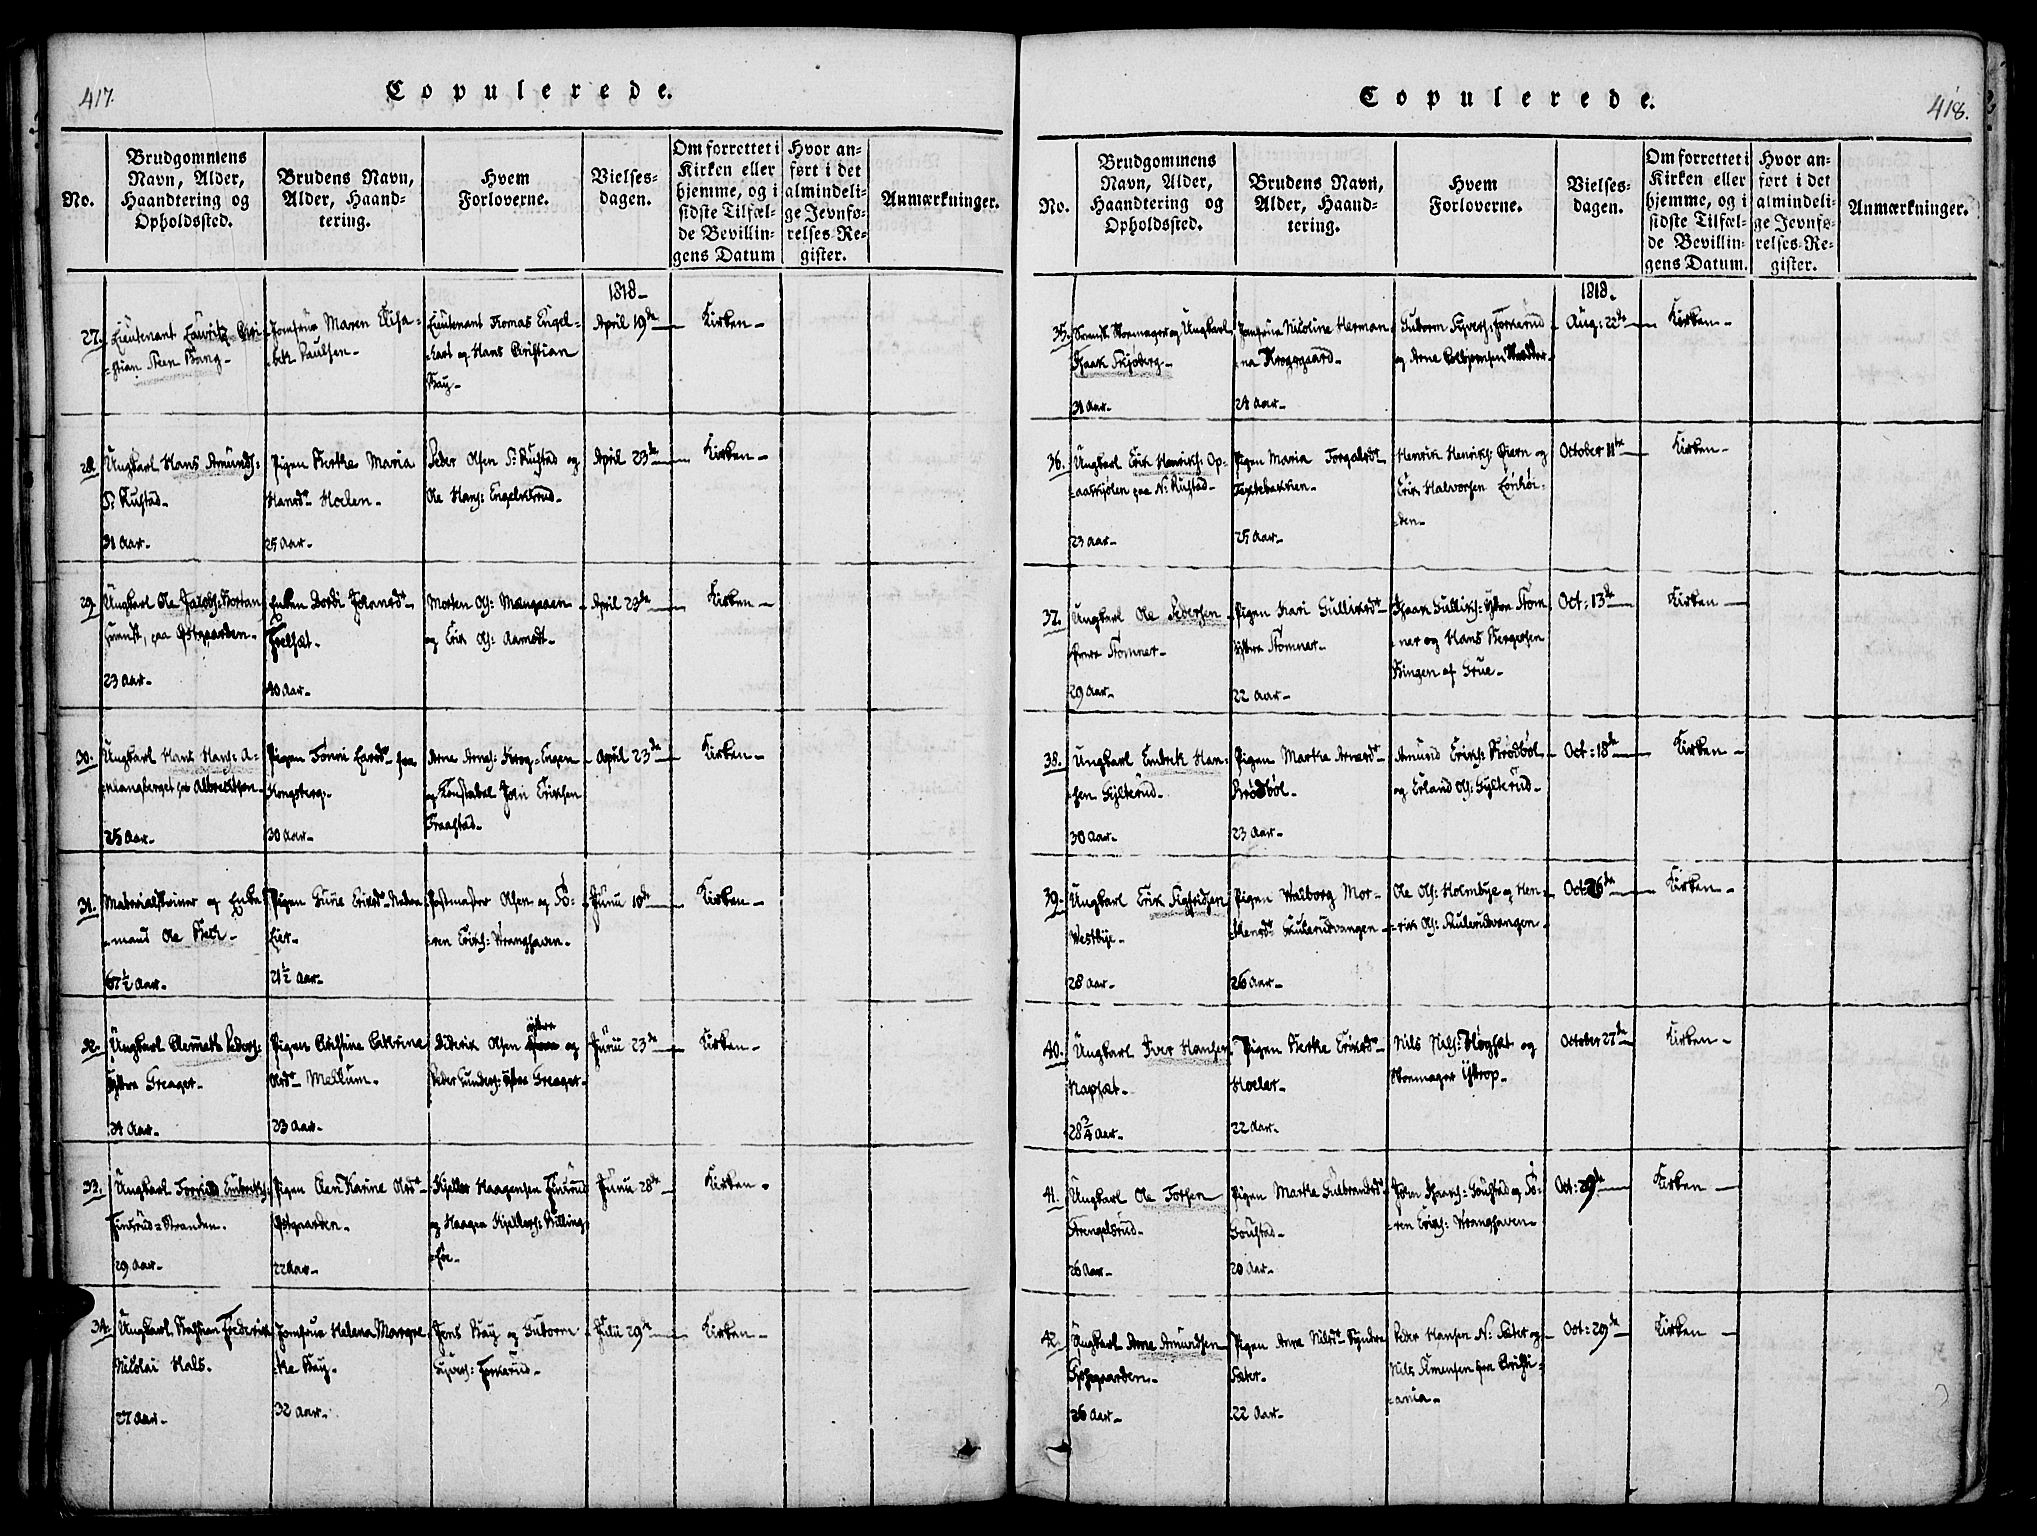 417.
Copulerede.
No.
Brudgommens
Navn, Alder,
Haandtering og
Opholdssted.
Brudens Navn,
Alder, Haand-
tering.
Hvem
Forloverne.
Vielses-
dagen.
Om forrettet i
Kirken eller
hjemme, og i
sidste Tilfæl-
de Bevillin-
gens Datum
Hvor an-
ført i det
almindeli-
ge Jevnfø-
relses-Re-
gister.
Anmærkninger.
1818-
27.
Lieutenant Lauritz Chri-
-stian Steen Bang-
Jomfrue Maren Elisa-
-beth Paulsen-
Lieutenant Thomas Engel-
-hart og Hans Christian
Bay-
April 19de
Kirken-
28.
Ungkarl Hans Amunds:
S: Rustad-
31 Aar-
Pigen Berthe Maria
Hansdr Hoelen-
25 Aar-
Peder Olsen S: Rustad og
Ole Hans: Engelsrud-
April 23de
Kirken-
29.
Ungkarl Ole Jacobs:
paa Østgaarden-
23 Aar-
Enken Bordi Johansdr
40 Aar-
Morten Ols:
og Erik Ols: Aamodt-
April 23de
Kirken-
30.
Ungkarl Hans Hans: A-
25 Aar-
Pigen Tonri fra
Kongsberg-
30 Aar-
Arne Arnes: Krog-Engen
og Konstabel John Eriksen
Fraastad-
April 23de
Kirken-
31.
Materialskriver og Enke-
-mand Ole
67½ Aar-
Pigen Gune Eriksdr Nedre
Lier-
21½ Aar-
Postmester Olsen og Sö-
-ren Eriks: Vranghaven-
Junii 10de
Kirken-
32.
Ungkarl Clemeth Peders:
ystre Greager-
34 Aar-
Pigen Christine Cathrine
Olsdr Mellum-
23 Aar-
Diderik Olsen ystre og
Peder Gunders: ystre Greager-
Junii 23de
Kirken-
33.
Ungkarl Embriks:
Finsrud-Stranden.
29 Aar-
Pigen Olea Karine Olsdr
Østgaarden-
22 Aar-
Kjelder Haagensen Finsrud
og Haagen Kjelders: Billing-
-föe-
Junii 28de
Kirken-
34.
Ungkarl Frederik
Nicolai Hals.
27 Aar-
Jomfrue Helena Margre-
-the Bay-
32 Aar-
Jens Bay og Guttorm
Syvers: Forkerud-
Julii 29de
Kirken-
418.
Copulerede.
No.
Brudgommens
Navn, Alder,
Haandtering og
Opholdssted.
Brudens Navn,
Alder, Haand-
tering.
Hvem
Forloverne.
Vielses-
dagen.
Om forrettet i
Kirken eller
hjemme, og i
sidste Tilfæl-
de Bevillin-
gens Datum.
Hvor an-
ført i det
almindeli-
ge Jevnfø-
relses-Re-
gister.
Anmærkninger.
1818.
35.
Svensk Skomager og Ungkarl
Isaak Skjöberg-
31 Aar-
Jomfrue Nicoline Herman-
-na Krogsgaard-
24 Aar-
Guttorm Syvers: Forkerud
og Arne Colbjörnsen
Aug: 22de
Kirken-
36.
Ungkarl Erik Henriks: Op-
-aaskjölen paa N: Rustad-
23 Aar-
Pigen Maria Torgalsdr
25 Aar-
Henrik Henriks: Øiern og
Erik Halvorsen Lönhöi-
-den-
October 11te
Kirken-
37.
Ungkarl Ole Pedersen
Stomner-
29 Aar-
Pigen Kari Gulliksdr
ystre Stomner-
22 Aar-
Isaak Gulliks: ystre Stom-
-ner og Hans Bergersen
Bingen af Grue-
Oct: 13de
Kirken-
38.
Ungkarl Embrik Han-
-sen Gylterud-
30 Aar-
Pigen Marthe Arnesdr
Brödböl-
23 Aar-
Amund Eriks: Brödböl
og Erland Ols: Gylterud-
Oct: 18de
Kirken-
39.
Ungkarl Erik Sigfridsen
Westbye-
28 Aar-
Pigen Walborg Mor-
-tensdr Skulerudvangen-
26 Aar-
Ole Ols: Holmbye og Hen-
-rik Ols: Skulerudvangen-
Oct: 26de
Kirken-
40.
Ungkarl Iver Hansen
Napset-
28¾ Aar-
Pigen Berthe Eriksdr
Hoeler-
22 Aar-
Nils Nils: og
Skomager Ystrop-
October 27de
Kirken-
41.
Ungkarl Ole Tosten
Strengelsrud-
26 Aar-
Pigen Marthe Gulbrandsdr
Goustad-
20 Aar-
John Isaaks: Goustad og Sö-
-ren Eriks: Vranghaven-
Oct: 29de
Kirken-
42.
Ungkarl Arne Amundsen
26 Aar-
Pigen Anne Nilsdr Nordre
Sæter-
22 Aar-
Peder Hansen N: Sæter og
Nils Simensen fra Christi-
-ania-
Oct: 29de
Kirken-